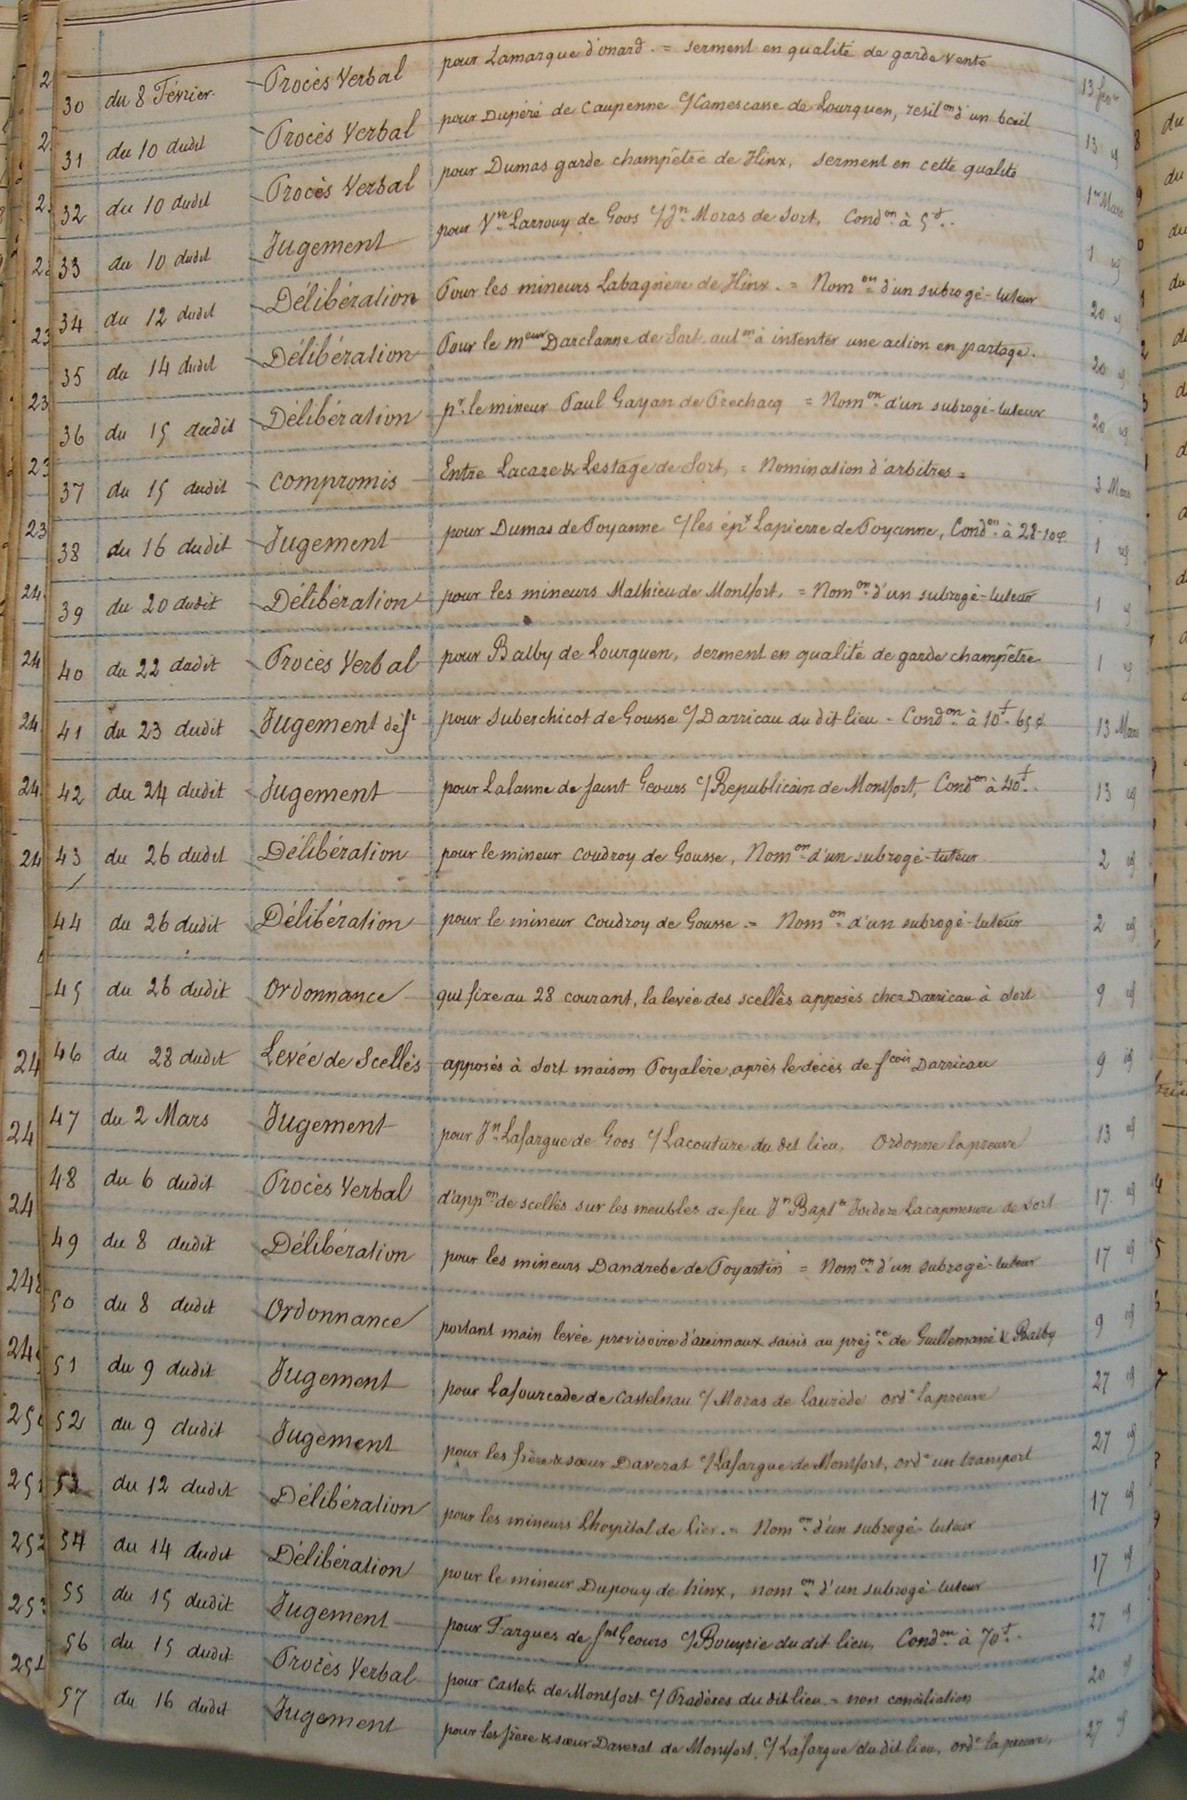 30 du 8 Février Procès Verbal pour Lamarque d'onard. = serment en qualité de garde vente 13 fev.er
31 du 10 dudit Procès Verbal pour Dupéré de Caupenne c/ Camescasse de Lourquen, resil.on d'un bail 13 id
32 du 10 dudit Procès Verbal pour Dumas garde champêtre de Hinx, serment en cette qualité 1er Mars
33 du 10 dudit Jugement pour V.ve Larrouy de Goos c/ J.n Moras de Sort, Cond.on à 5 f.
34 du 12 dudit Délibération Pour les mineurs Labagnère de Hinx. = Nom.on d'un subrogé-tuteur 20 id
35 du 14 dudit Délibération Pour le m.eur Darclanne de Sort aut.on à intenter une action en partage. 20 id
36 du 15 dudit Délibération p.r le mineur Paul Gayan de Prechacq = Nom.on d'un subrogé-tuteur 20 id
37 du 15 dudit Compromis Entre Lacaze & Lestage de Sort, = Nomination d'arbitres = 3 Mars
38 du 16 dudit Jugement pour Dumas de Poyanne c/ les ép.x Lapierre de Poyanne, Cond.on à 28-10 c 1 id
39 du 20 dudit Délibération pour les mineurs Mathieu de Montfort, = Nom.on d'un subrogé-tuteur 1 id
40 du 22 dudit Procès Verbal pour Balby de Lourquen, serment en qualité de garde champêtre 1 id
41 du 23 dudit Jugement déf.t pour Suberchicot de Gousse c/ Darricau du dit lieu - Cond.on à 10 f. 65 c 13 Mars
42 du 24 dudit Jugement pour Lalanne de Saint Geours c/ Republicain de Montfort, Cond.on à 40 f. 13 id
43 du 26 dudit Délibération pour le mineur Coudroy de Gousse, Nom.on d'un subrogé-tuteur 2 id
44 du 26 dudit Délibération pour le mineur Coudroy de Gousse = Nom.on d'un subrogé-tuteur 2 id
45 du 26 dudit Ordonnance qui fixe au 28 courant, la levée des scellés apposés chez Darricau à Sort 9 id
46 du 28 dudit Levée de Scellés apposés à Sort maison Poyalère, après le décès de f.cois Darricau 9 id
47 du 2 Mars Jugement pour J.n Lafargue de Goos c/ Lacouture du dit lieu, Ordonne la preuve 13 id
48 du 6 dudit Procès Verbal d'app.on de scellés sur les meubles de feu J.n Bapt.te Isidore de Sort 17 id
49 du 8 dudit Délibération pour les mineurs Dandrebe de Poyartin = Nom.on d'un subrogé-tuteur 17 id
50 du 8 dudit Ordonnance portant main levée provisoire d'animaux saisis au préj.ce de Guillemané & Balby 9 id
51 du 9 dudit Jugement pour Lafourcade de Castelnau c/ Moras de Laurède ord.e la preuve 27 id
52 du 9 dudit Jugement pour les frère & sœur Daverat c/ Lafargue de Montfort, ord.e un transport 27 id
53 du 12 dudit Délibération pour les mineurs Lhospital de Lier. = Nom.on d'un subrogé-tuteur 17 id
54 du 14 dudit Délibération pour le mineur Dupouy de hinx, nom.on d'un subrogé-tuteur 17 id
55 du 15 dudit Jugement pour Fargues de S.nt Geours c/ Bouyrie du dit lieu, Cond.on à 70 f. 27 id
56 du 15 dudit Procès Verbal pour Castets de Montfort c/ Pradères du dit lieu = non conciliation 20 id
57 du 16 dudit Jugement pour les frère & sœur Daverat de Montfort c/ Lafargue du dit lieu, ord.e la preuve, 27 id